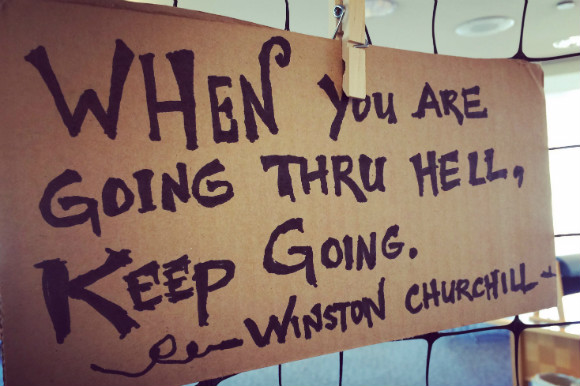 WHEN YOU ARE
GOING THRU HELL,
KEEP GOING.
WINSTON CHURCHILL